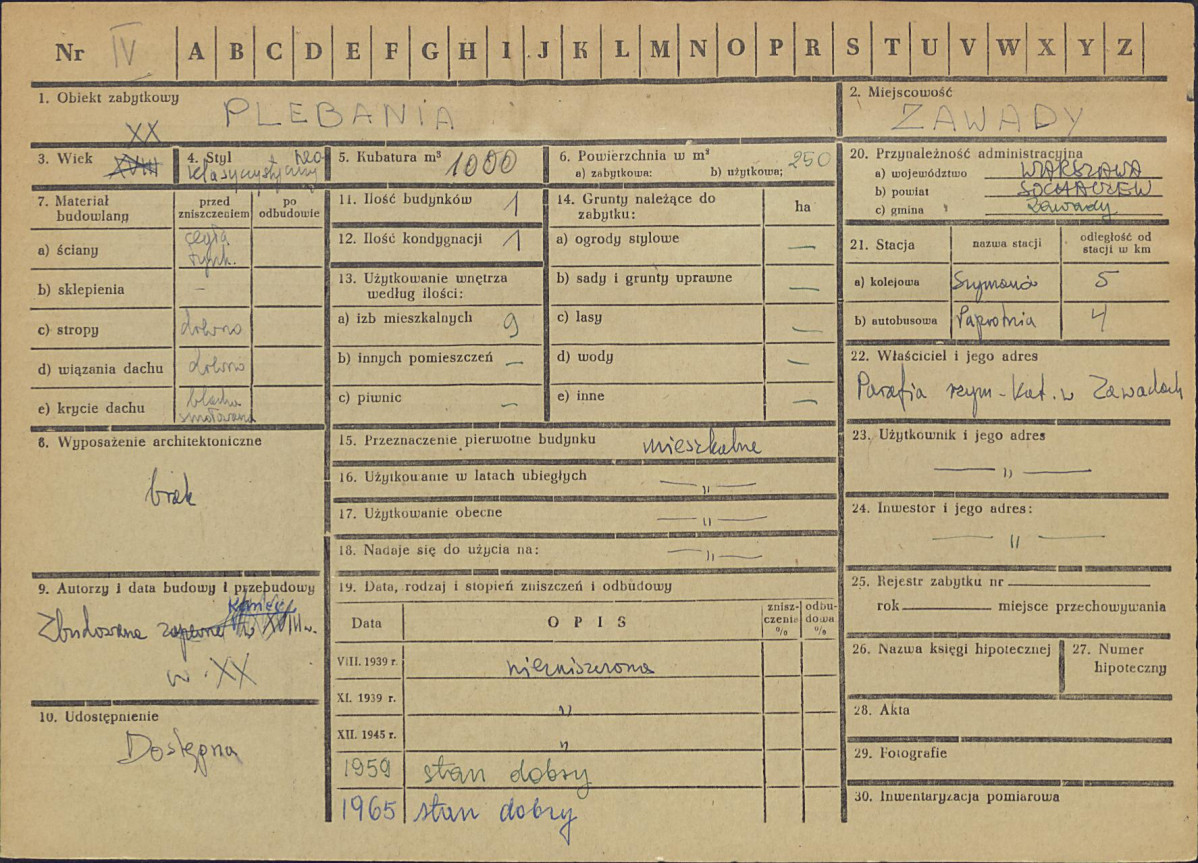 Nr IV A B C D E F G H I J K L M N O P R S T U V W X Y Z
1. Obiekt zabytkowy
PLEBANIA
2. Miejscowość
ZAWADY
3. Wiek
XX
XVIII
4. Styl neo
klasycystyczny
5. Kubatura m³ 1000
6. Powierzchnia w m²
a) zabytkowa: b) użytkowa: 250
7. Materiał budowlany
przed zniszczeniem
po odbudowie
a) ściany
cegła
tynk.
b) sklepienia –
c) stropy drewno
d) wiązania dachu drewno
e) krycie dachu
blacha
smołowana
8. Wyposażenie architektoniczne
brak
9. Autorzy i data budowy i przebudowy
koniec
Zbudowana zapewne w XVIII w.
w XX
10. Udostępnienie
Dostępna
11. Ilość budynków 1
12. Ilość kondygnacji 1
13. Użytkowanie wnętrza
według ilości:
a) izb mieszkalnych 9
b) innych pomieszczeń –
c) piwnic –
14. Grunty należące do
zabytku:
ha
a) ogrody stylowe –
b) sady i grunty uprawne –
c) lasy –
d) wody –
e) inne –
15. Przeznaczenie pierwotne budynku mieszkalne
16. Użytkowanie w latach ubiegłych — „ —
17. Użytkowanie obecne — „ —
18. Nadaje się do użycia na: — „ —
19. Data, rodzaj i stopień zniszczeń i odbudowy
Data
OPIS
znisz-
czenie
%
odbu-
dowa
%
VIII. 1939 r. niezniszczona
XI. 1939 r. „
XII. 1945 r. „
1959 stan dobry
1965 stan dobry
20. Przynależność administracyjna
a) województwo WARSZAWA
b) powiat SOCHACZEW
c) gmina Zawady
21. Stacja
nazwa stacji
odległość od
stacji w km
a) kolejowa Szymanów 5
b) autobusowa Paprotnia 4
22. Właściciel i jego adres
Parafia rzym-kat. w Zawadach
23. Użytkownik i jego adres
— „ —
24. Inwestor i jego adres:
— „ —
25. Rejestr zabytku nr
rok miejsce przechowywania
26. Nazwa księgi hipotecznej
27. Numer
hipoteczny
28. Akta
29. Fotografie
30. Inwentaryzacja pomiarowa